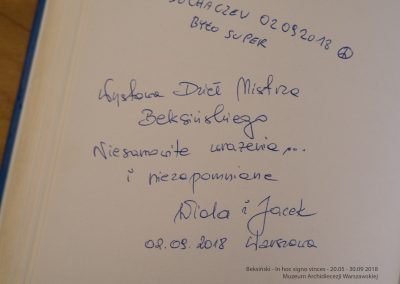 SOCHACZEW 02.09.2018
BYŁO SUPER
Wystawa Dzieł Mistrza
Beksińskiego
Niesamowite wrażenia...
i niezapomniane
Viola i Jacek
02.09.2018 Warszawa
Beksiński - In hoc signo vinces - 20.05 - 30.09 2018
Muzeum Archidiecezji Warszawskiej